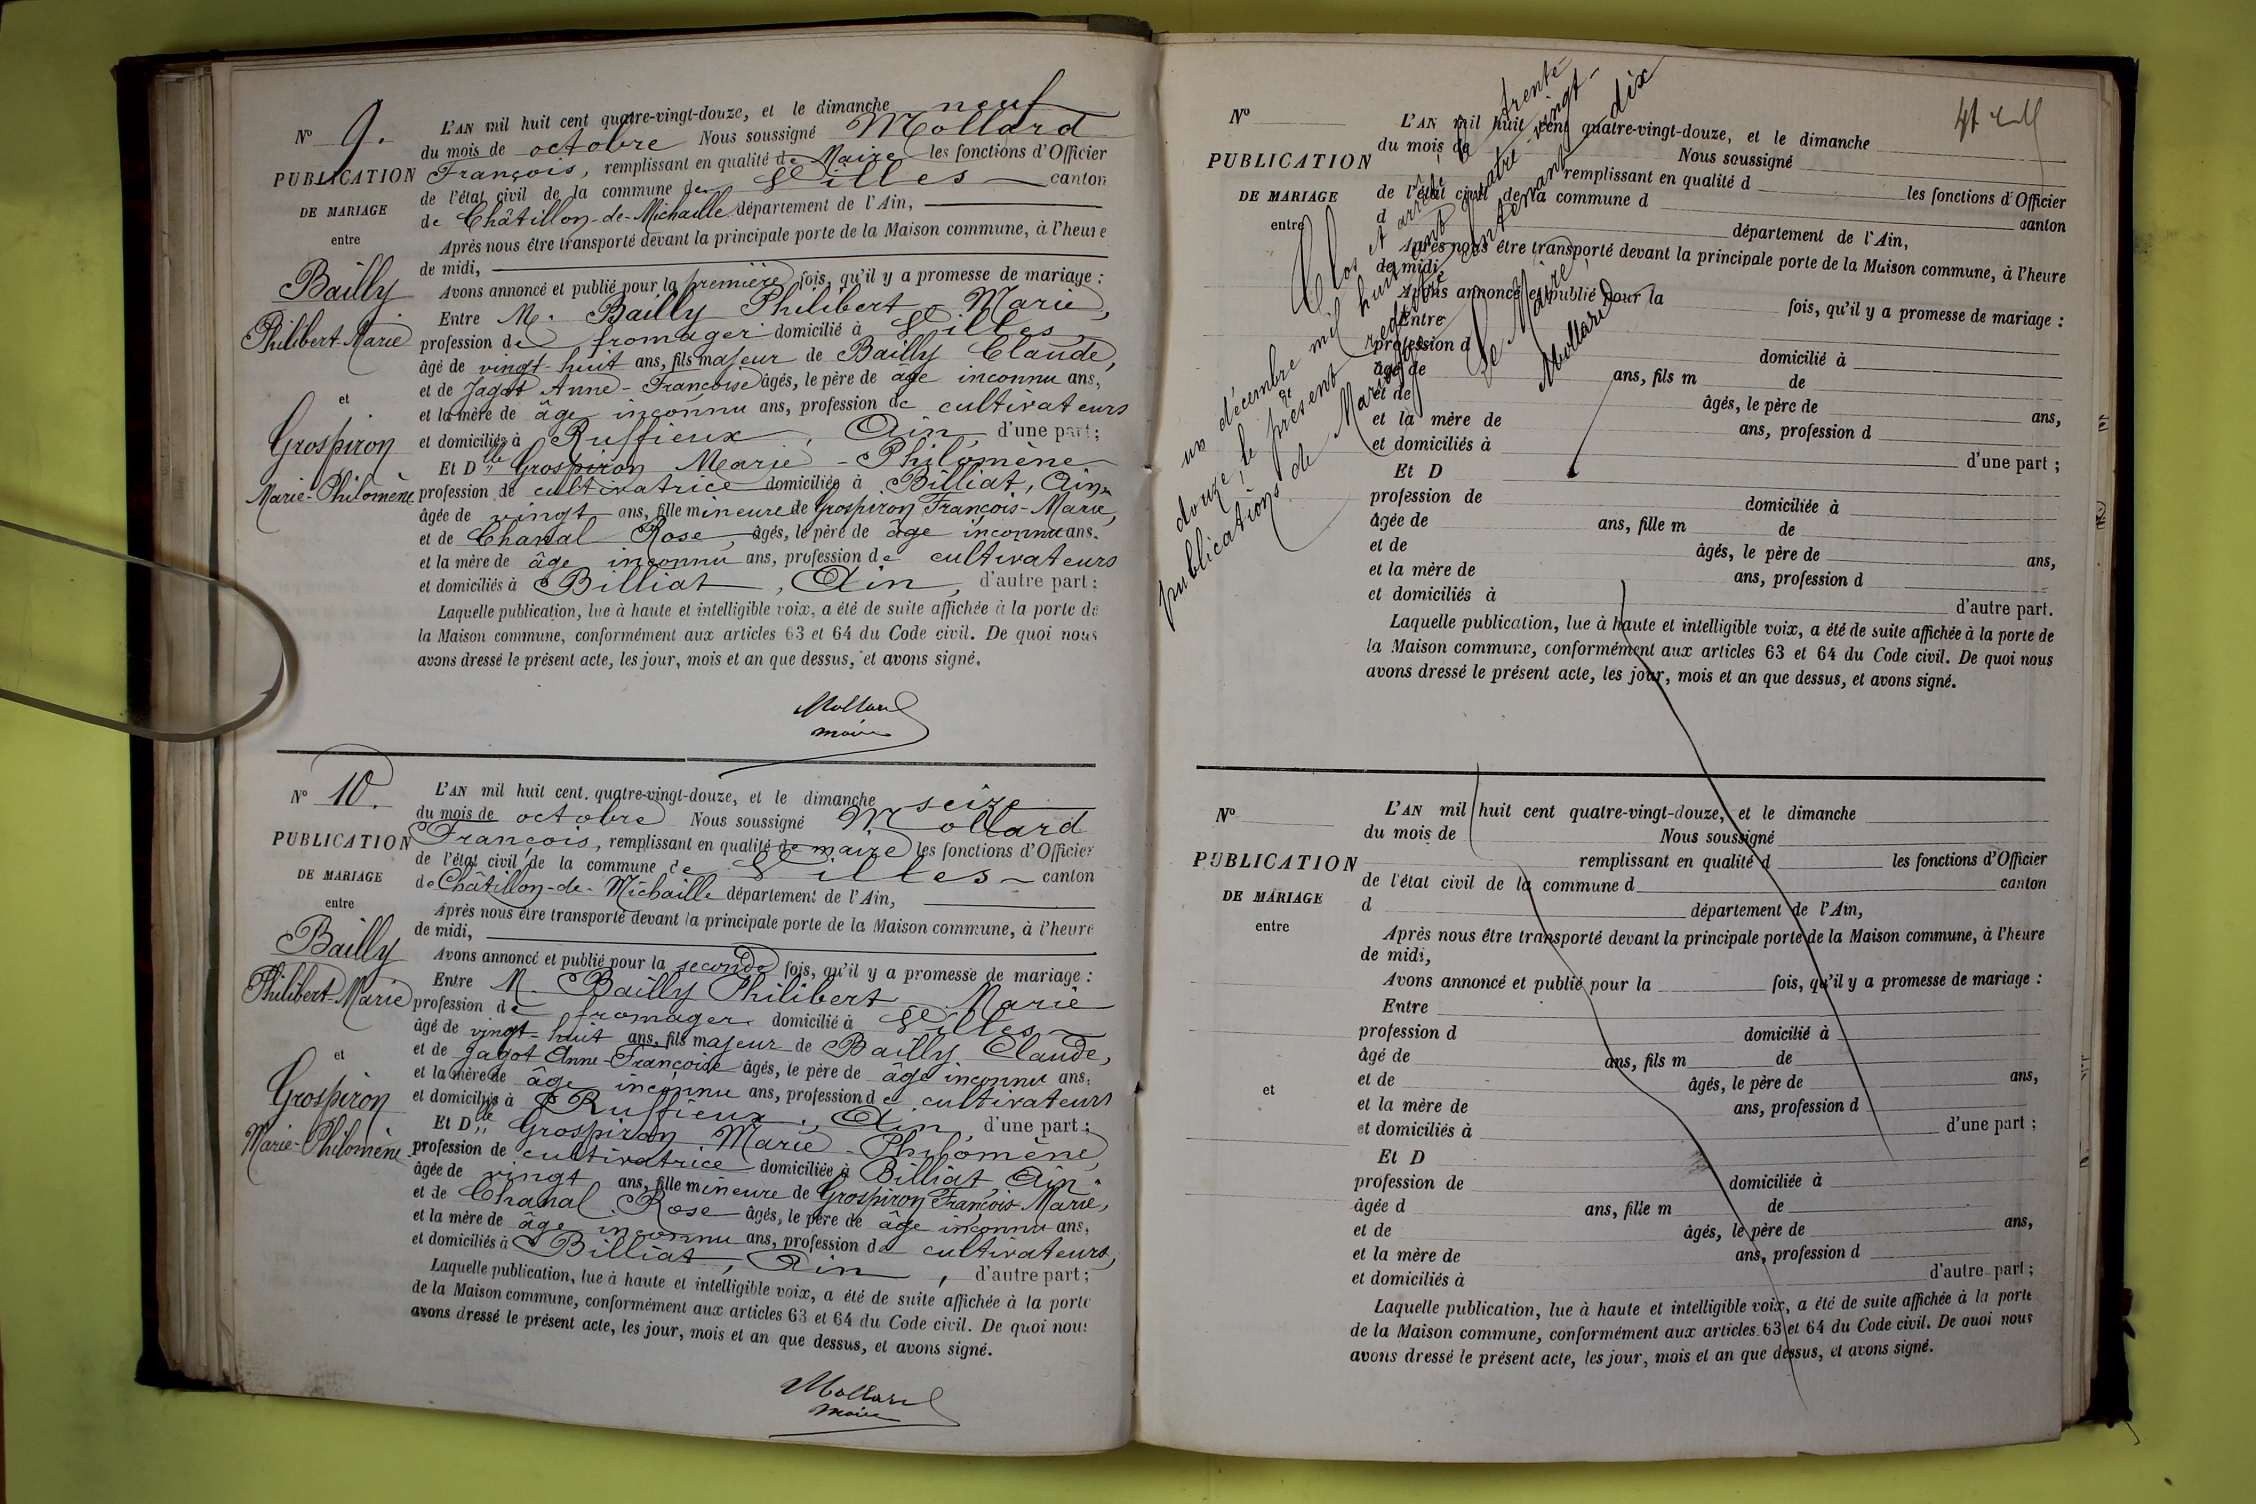 N° 9.
PUBLICATION
DE MARIAGE
entre
Bailly
Philibert-Marie
et
Grospiron
Marie-Philomène
L'AN mil huit cent quatre-vingt-douze, et le dimanche neuf
du mois de octobre Nous soussigné Mollard
François, remplissant en qualité de Maire les fonctions d'Officier
de l'état civil de la commune de Villes canton
de Châtillon-de-Michaille département de l'Ain,
Après nous être transporté devant la principale porte de la Maison commune, à l'heure
de midi,
Avons annoncé et publié pour la première fois, qu'il y a promesse de mariage :
Entre M. Bailly Philibert-Marie,
profession de fromager domicilié à Villes
âgé de vingt-huit ans, fils majeur de Bailly Claude,
et de Jagot Anne-Françoise âgés, le père de âge inconnu ans,
et la mère de âge inconnu ans, profession de cultivateurs
et domiciliés à Ruffieux, Ain, d'une part;
Et Dlle Grospiron Marie-Philomène
profession de cultivatrice domiciliée à Billiat, Ain,
âgée de vingt ans, fille mineure de Grospiron François-Marie,
et de Chanal Rose, âgés, le père de âge inconnu ans.
et la mère de âge inconnu ans, profession de cultivateurs
et domiciliés à Billiat, Ain, d'autre part;
Laquelle publication, lue à haute et intelligible voix, a été de suite affichée à la porte de
la Maison commune, conformément aux articles 63 et 64 du Code civil. De quoi nous
avons dressé le présent acte, les jour, mois et an que dessus, et avons signé.
Mollard
maire
N° 10.
PUBLICATION
DE MARIAGE
entre
Bailly
Philibert-Marie
et
Grospiron
Marie-Philomène
L'AN mil huit cent. quatre-vingt-douze, et le dimanche seize
du mois de octobre Nous soussigné Mollard
François, remplissant en qualité de maire les fonctions d'Officier
de l'état civil de la commune de Villes canton
de Châtillon-de-Michaille département de l'Ain,
Après nous être transporté devant la principale porte de la Maison commune, à l'heure
de midi,
Avons annoncé et publié pour la seconde fois, qu'il y a promesse de mariage :
Entre M. Bailly Philibert Marie
profession de fromager domicilié à Villes
âgé de vingt-huit ans, fils majeur de Bailly Claude,
et de Jagot Anne-Françoise âgés, le père de âge inconnu ans,
et la mère de âge inconnu ans, profession de cultivateurs
et domiciliés à Ruffieux, Ain, d'une part;
Et Dlle Grospiron Marie-Philomène,
profession de cultivatrice domiciliée à Billiat, Ain
âgée de vingt ans, fille mineure de Grospiron François-Marie,
et de Chanal Rose âgés, le père de âge inconnu ans,
et la mère de âge inconnu ans, profession de cultivateurs,
et domiciliés à Billiat, Ain, d'autre part;
Laquelle publication, lue à haute et intelligible voix, a été de suite affichée à la porte
de la Maison commune, conformément aux articles 63 et 64 du Code civil. De quoi nous
avons dressé le présent acte, les jour, mois et an que dessus, et avons signé.
Mollard
maire
N°
PUBLICATION
DE MARIAGE
entre
L'AN mil huit cent quatre-vingt-douze, et le dimanche
du mois de Nous soussigné
remplissant en qualité d les fonctions d'Officier
de l'état civil de la commune d canton
d département de l'Ain,
Après nous être transporté devant la principale porte de la Maison commune, à l'heure
de midi,
Avons annoncé et publié pour la fois, qu'il y a promesse de mariage :
Entre
profession d domicilié à
âgé de ans, fils m de
et de âgés, le père de ans,
et la mère de ans, profession d
et domiciliés à d'une part;
Et D
profession de domiciliée à
âgée de ans, fille m de
et de âgés, le père de ans,
et la mère de ans, profession d
et domiciliés à d'autre part.
Laquelle publication, lue à haute et intelligible voix, a été de suite affichée à la porte de
la Maison commune, conformément aux articles 63 et 64 du Code civil. De quoi nous
avons dressé le présent acte, les jour, mois et an que dessus, et avons signé.
Clos et arrêté le trente
un décembre mil huit cent quatre-vingt-
douze, le présent registre contenant dix
publications de de Mariage
Le Maire,
Mollard
N°
PUBLICATION
DE MARIAGE
entre
et
L'AN mil huit cent quatre-vingt-douze, et le dimanche
du mois de Nous soussigné
remplissant en qualité d les fonctions d'Officier
de l'état civil de la commune d canton
d département de l'Ain,
Après nous être transporté devant la principale porte de la Maison commune, à l'heure
de midi,
Avons annoncé et publié pour la fois, qu'il y a promesse de mariage :
Entre
profession d domicilié à
âgé de ans, fils m de
et de âgés, le père de ans,
et la mère de ans, profession d
et domiciliés à d'une part;
Et D
profession de domiciliée à
âgée d ans, fille m de
et de âgés, le père de ans,
et la mère de ans, profession d
et domiciliés à d'autre part;
Laquelle publication, lue à haute et intelligible voix, a été de suite affichée à la porte
de la Maison commune, conformément aux articles 63 et 64 du Code civil. De quoi nous
avons dressé le présent acte, les jour, mois et an que dessus, et avons signé.